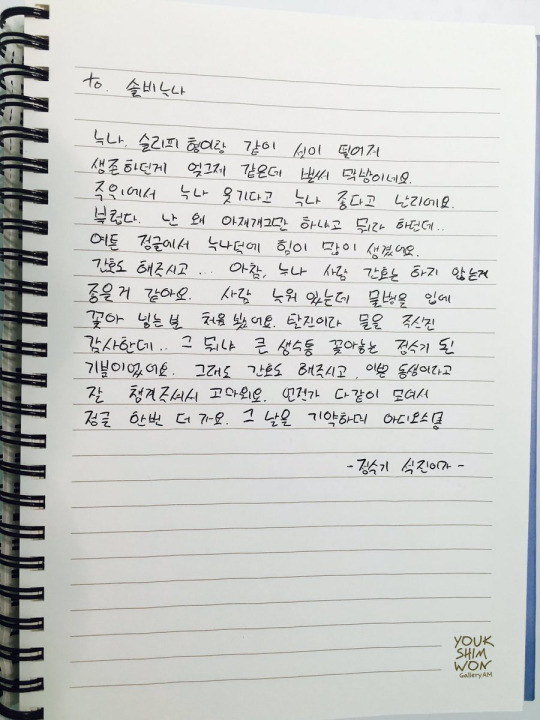 to. 솔비누나
누나, 슬리피 형이랑 같이 셋이 떨어져
생존하던게 엊그제 같은데 벌써 막방이네요.
주위에서 누나 웃기다고 누나 좋다고 난리에요.
부럽다. 난 왜 아재개그만 하냐고 뭐라 하던데..
여튼 정글에서 누나덕에 힘이 많이 생겼어요.
간호도 해주시고... 아참, 누나 사람 간호는 하지 않는게
좋을거 같아요. 사람 누워있는데 물병을 입에
꽂아 넣는건 처음 봤어요. 탈진이라 물을 주신건
감사한데.. 그 뭐냐 큰 생수통 꽂아놓는 정수기 된
기분이였어요. 그래도 간호도 해주시고, 이쁜 동생이라고
잘 챙겨주셔서 고마워요. 언젠가 다같이 모여서
정글 한번 더 가요. 그 날을 기약하며 아디오스
-정수기 석진이가-
YOUK
SHIM
WON
Gallery AM